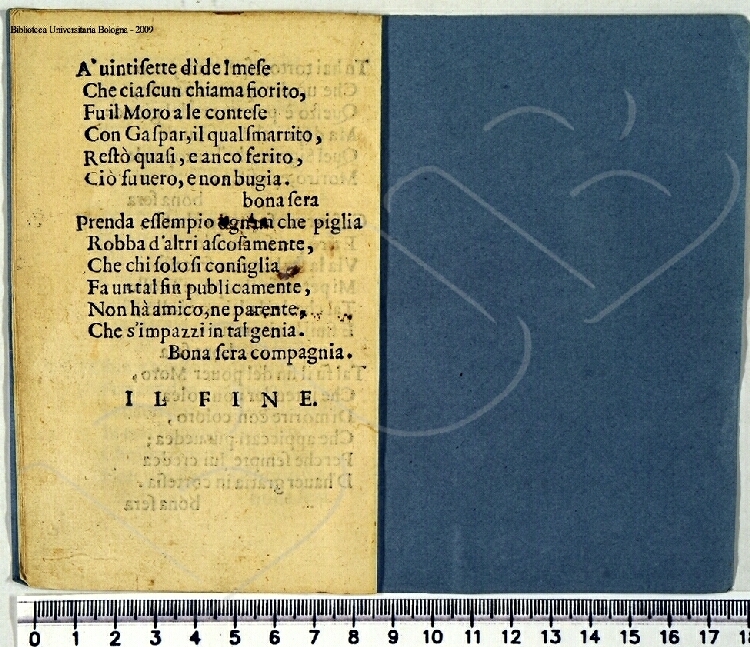 Biblioteca Universitaria Bologna - 2009
A' uintisette di del mese
Che ciaſcun chiama fiorito,
Fu il Moro a le conteſe
Con Gaſpar, il qual ſmarrito,
Reſtò quaſi, e anco ferito,
Ciò fu uero, e non bugia.
bona ſera
Prenda eſſempio che piglia
Robba d'altri aſcoſamente,
Che chi ſolo ſi conſiglia
Fa un tal fin publicamente,
Non hà amico, ne parente,
Che s'impazzi in tal genia.
Bona ſera compagnia.
IL FINE.
0 1 2 3 4 5 6 7 8 9 10 11 12 13 14 15 16 17 18